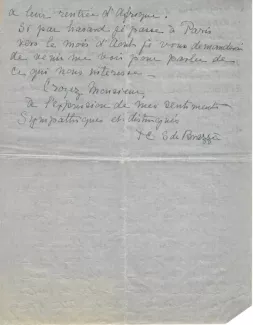 à leur rentrée d'Afrique.
Si par hasard je passe à Paris
vers le mois d'Août je vous demanderai
de venir me voir pour parler de
ce qui nous intéresse.
Croyez Monsieur,
à l'expression de mes sentiments
sympathiques et distingués
S de Brazza